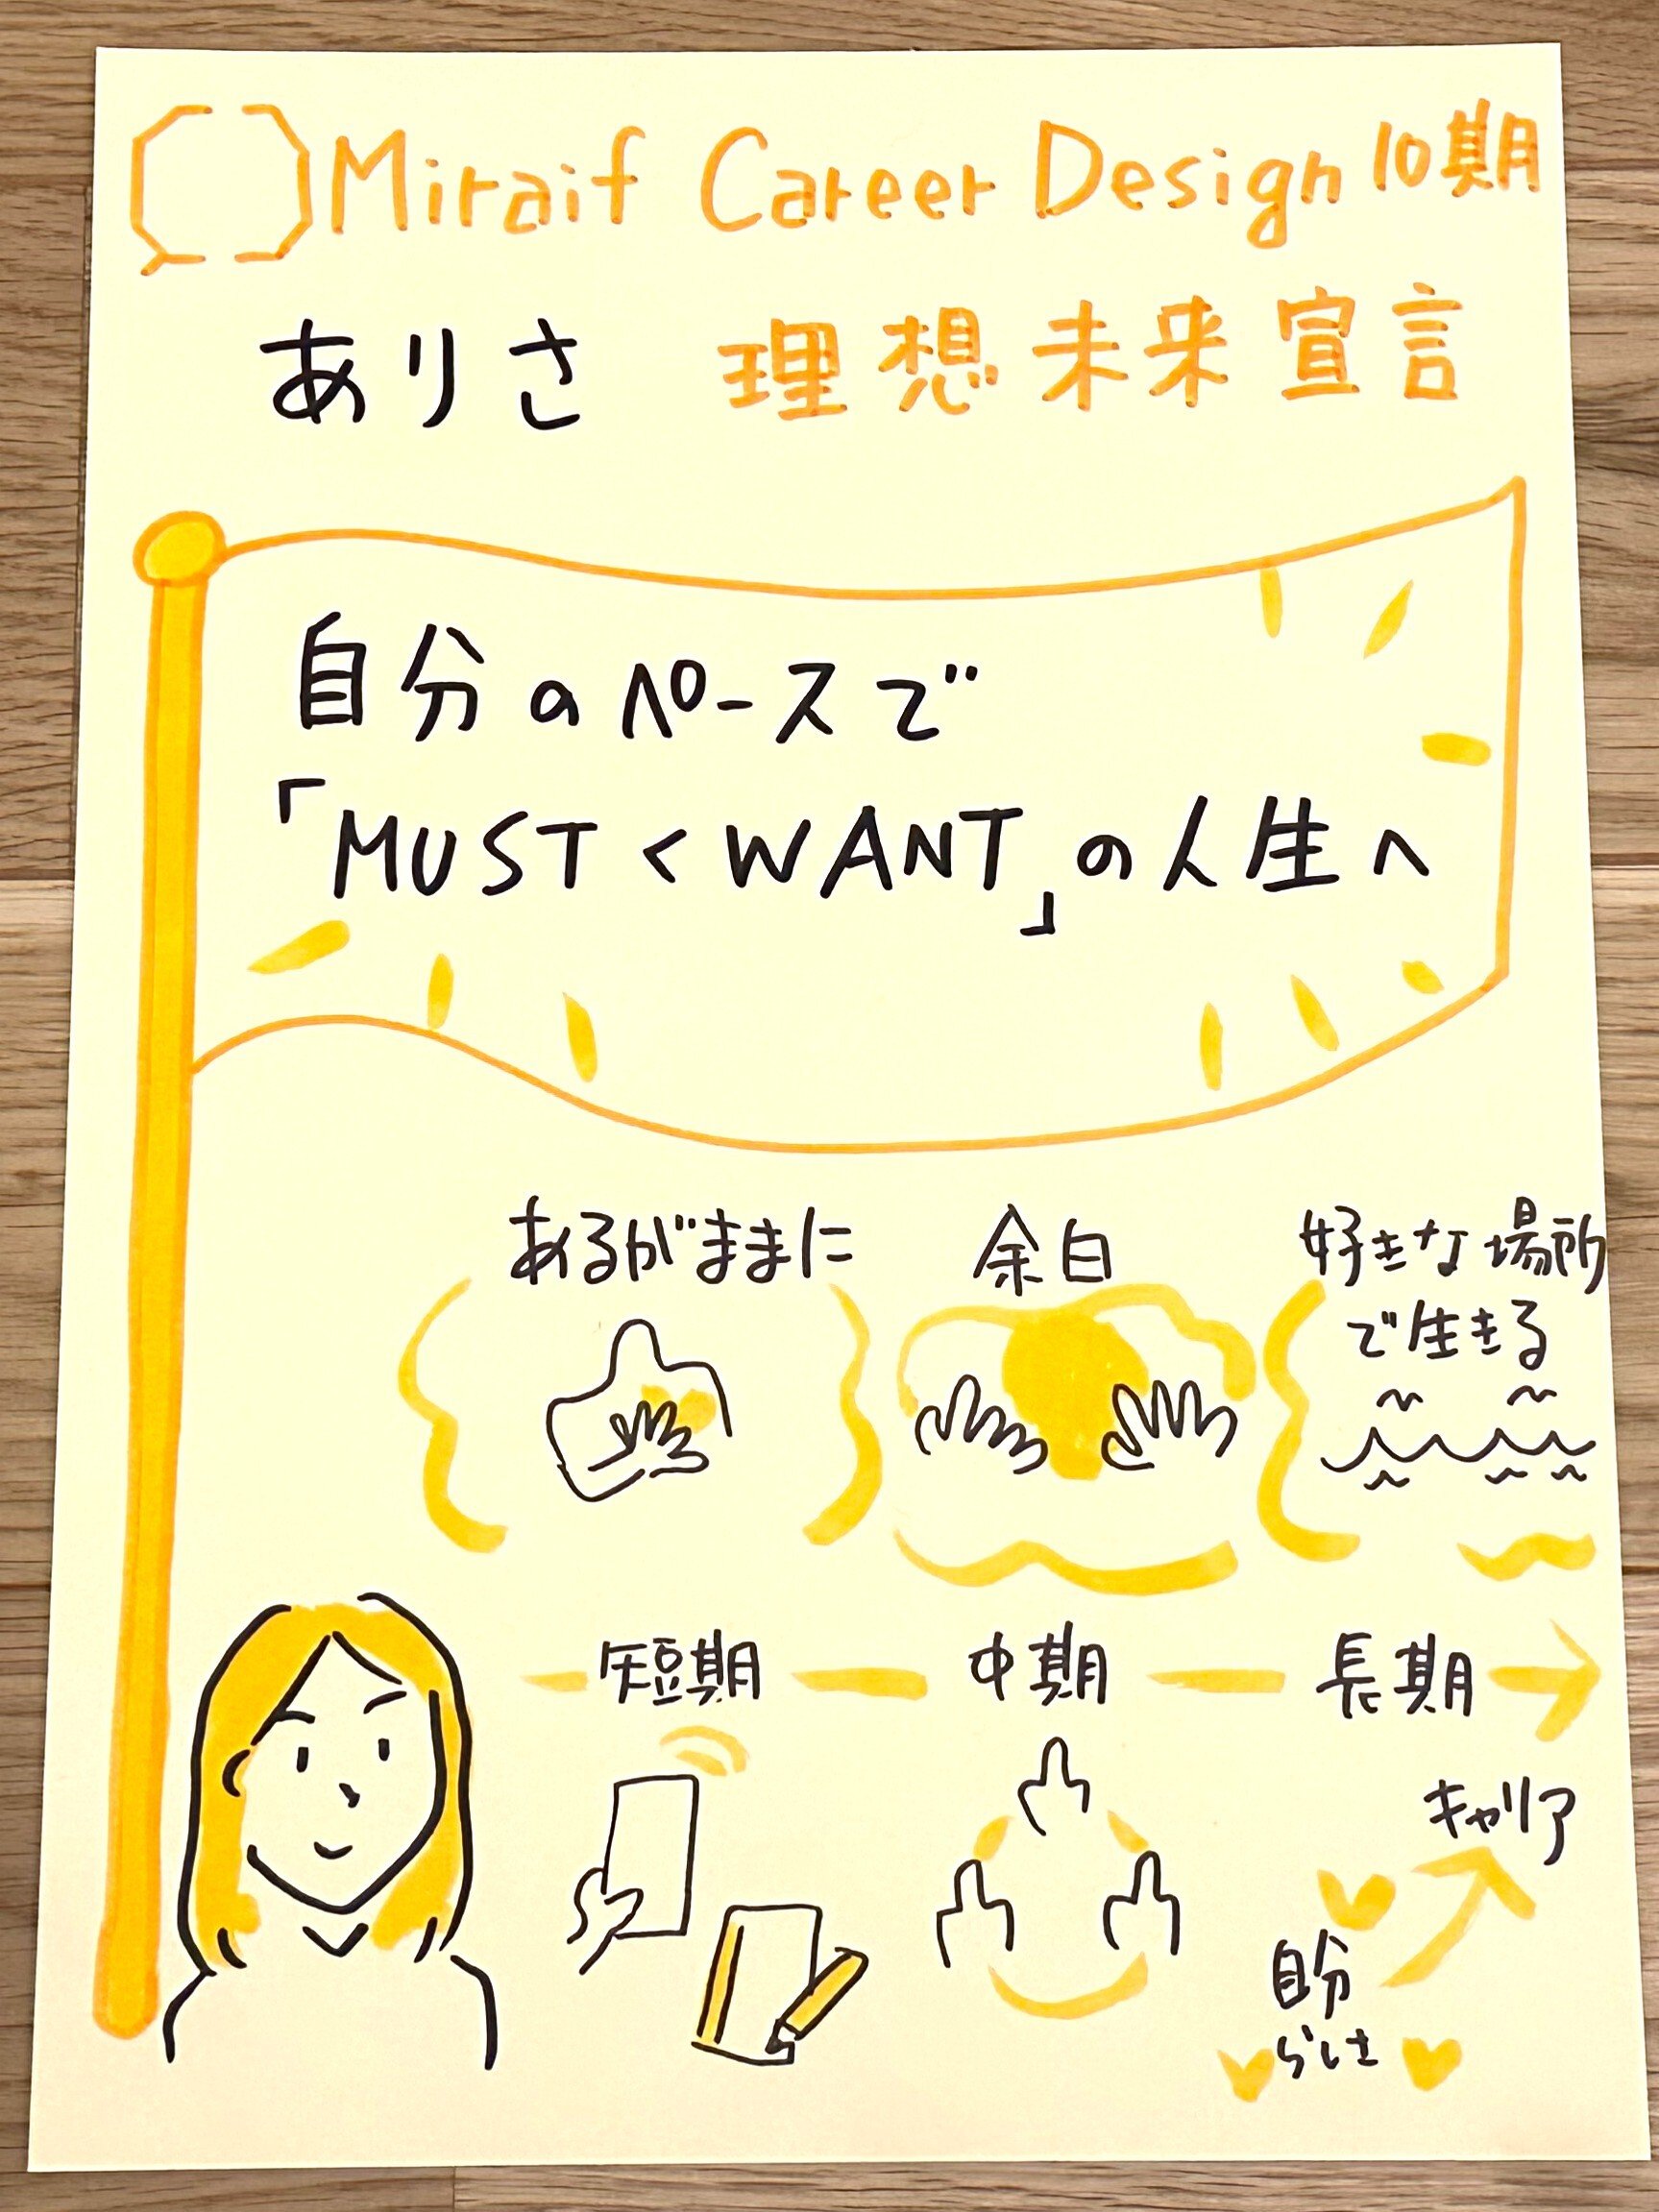 Miraif Career Design 10期
ありさ 理想未来宣言
自分のペースで
「MUST < WANT」の人生へ
あるがままに
余白
好きな場所
で生きる
短期 中期 長期
キャリア
自分
らしさ